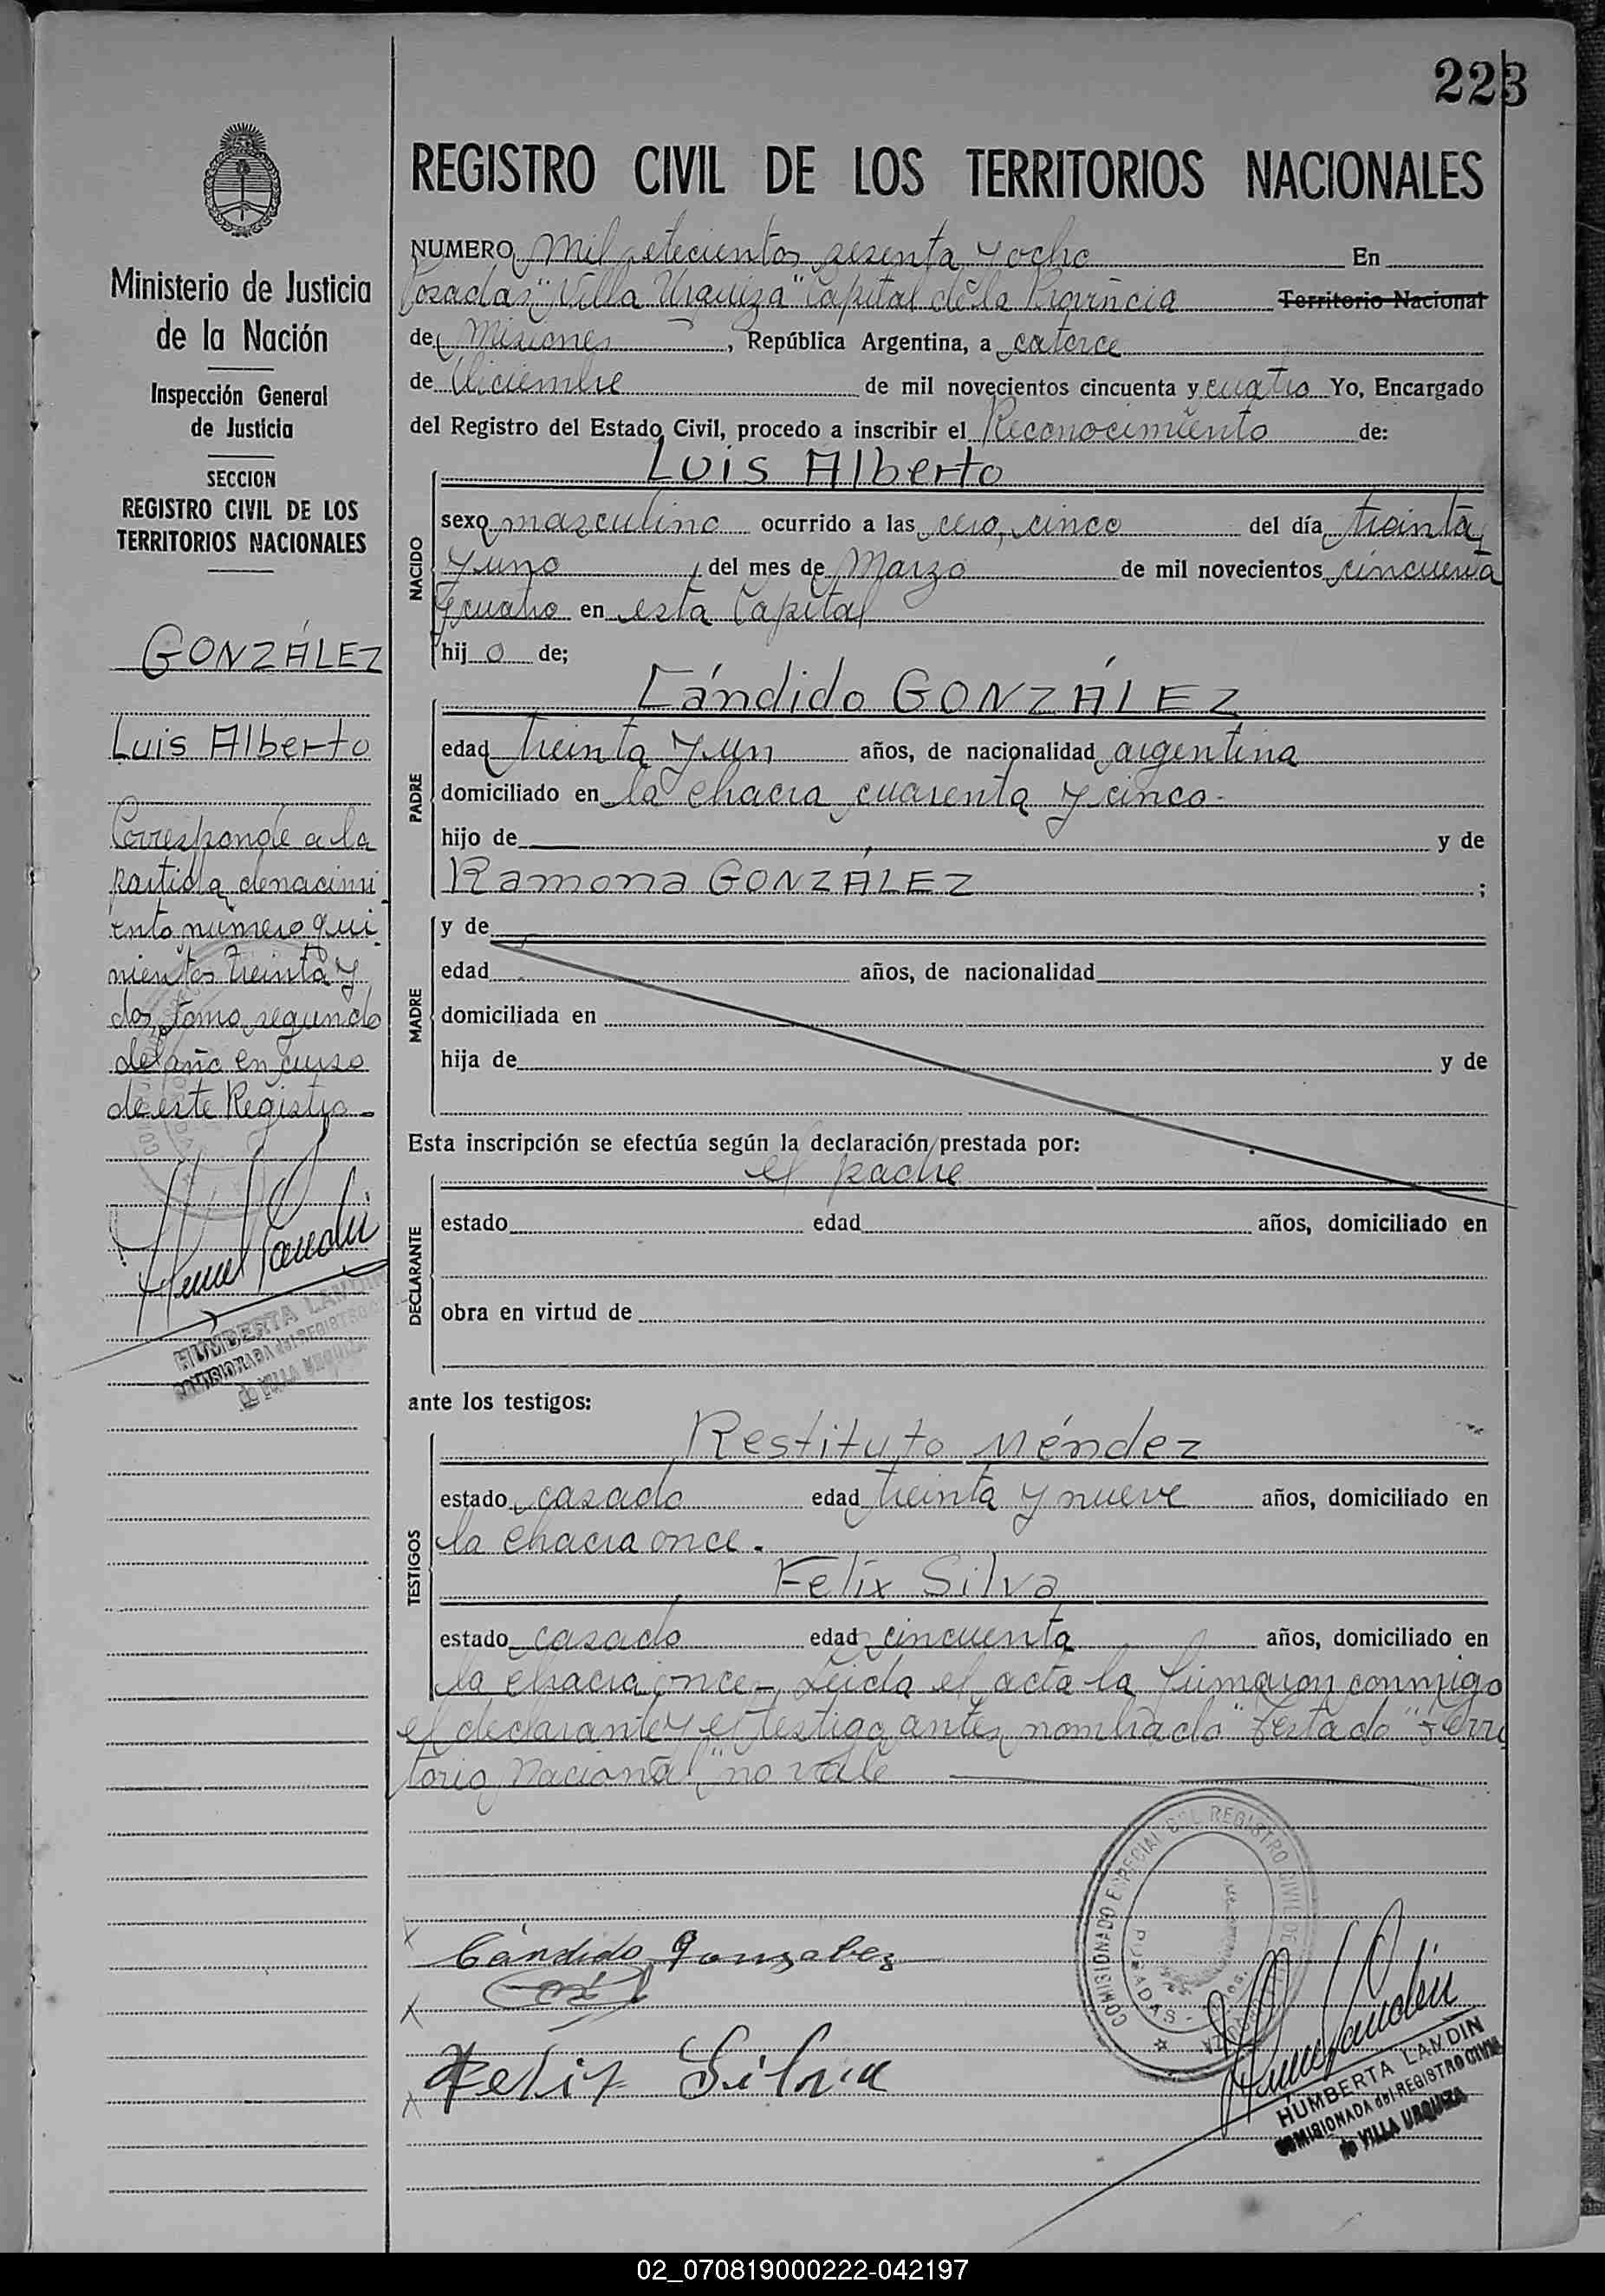 223
REGISTRO CIVIL DE LOS TERRITORIOS NACIONALES
NUMERO Mil setecientos sesenta y ocho En
Posadas "Villa Urquiza" Capital de la Provincia Territorio Nacional
de Misiones, República Argentina, a catorce
de Diciembre de mil novecientos cincuenta y cuatro Yo, Encargado
del Registro del Estado Civil, procedo a inscribir el Reconocimiento de:
Luis Alberto
NACIDO
sexo masculino ocurrido a las cero, cinco del día treinta
y uno del mes de Marzo de mil novecientos cincuenta
y cuatro en esta Capital
hijo de;
Cándido GONZÁLEZ
PADRE
edad treinta y un años, de nacionalidad argentina
domiciliado en la chacra cuarenta y cinco.-
hijo de y de
Ramona GONZÁLEZ ;
MADRE
y de
edad años, de nacionalidad
domiciliada en
hija de y de
Esta inscripción se efectúa según la declaración prestada por:
el padre
DECLARANTE
estado edad años, domiciliado en
obra en virtud de
ante los testigos:
TESTIGOS
Restituto Méndez
estado casado edad treinta y nueve años, domiciliado en
la chacra once.
Felix Silva
estado casado edad cincuenta años, domiciliado en
la chacra once.- Leida el acta la firmaron conmigo
el declarante y el testigo antes nombrado "Testado" "Terri
torio Nacional" no vale
Cándido Gonzalez
Felix Silva
COMISIONADO ESPECIAL DEL REGISTRO CIVIL DE
POSADAS
HUMBERTA LANDIN
COMISIONADA del REGISTRO CIVIL
de VILLA URQUIZA
Ministerio de Justicia
de la Nación
Inspección General
de Justicia
SECCION
REGISTRO CIVIL DE LOS
TERRITORIOS NACIONALES
GONZÁLEZ
Luis Alberto
Corresponde a la
partida de nacimi
ento número qui
nientos treinta y
dos, tomo segundo
del año en curso
de este Registro.-
HUMBERTA LANDIN
COMISIONADA del REGISTRO
de VILLA URQUIZA
02_070819000222-042197